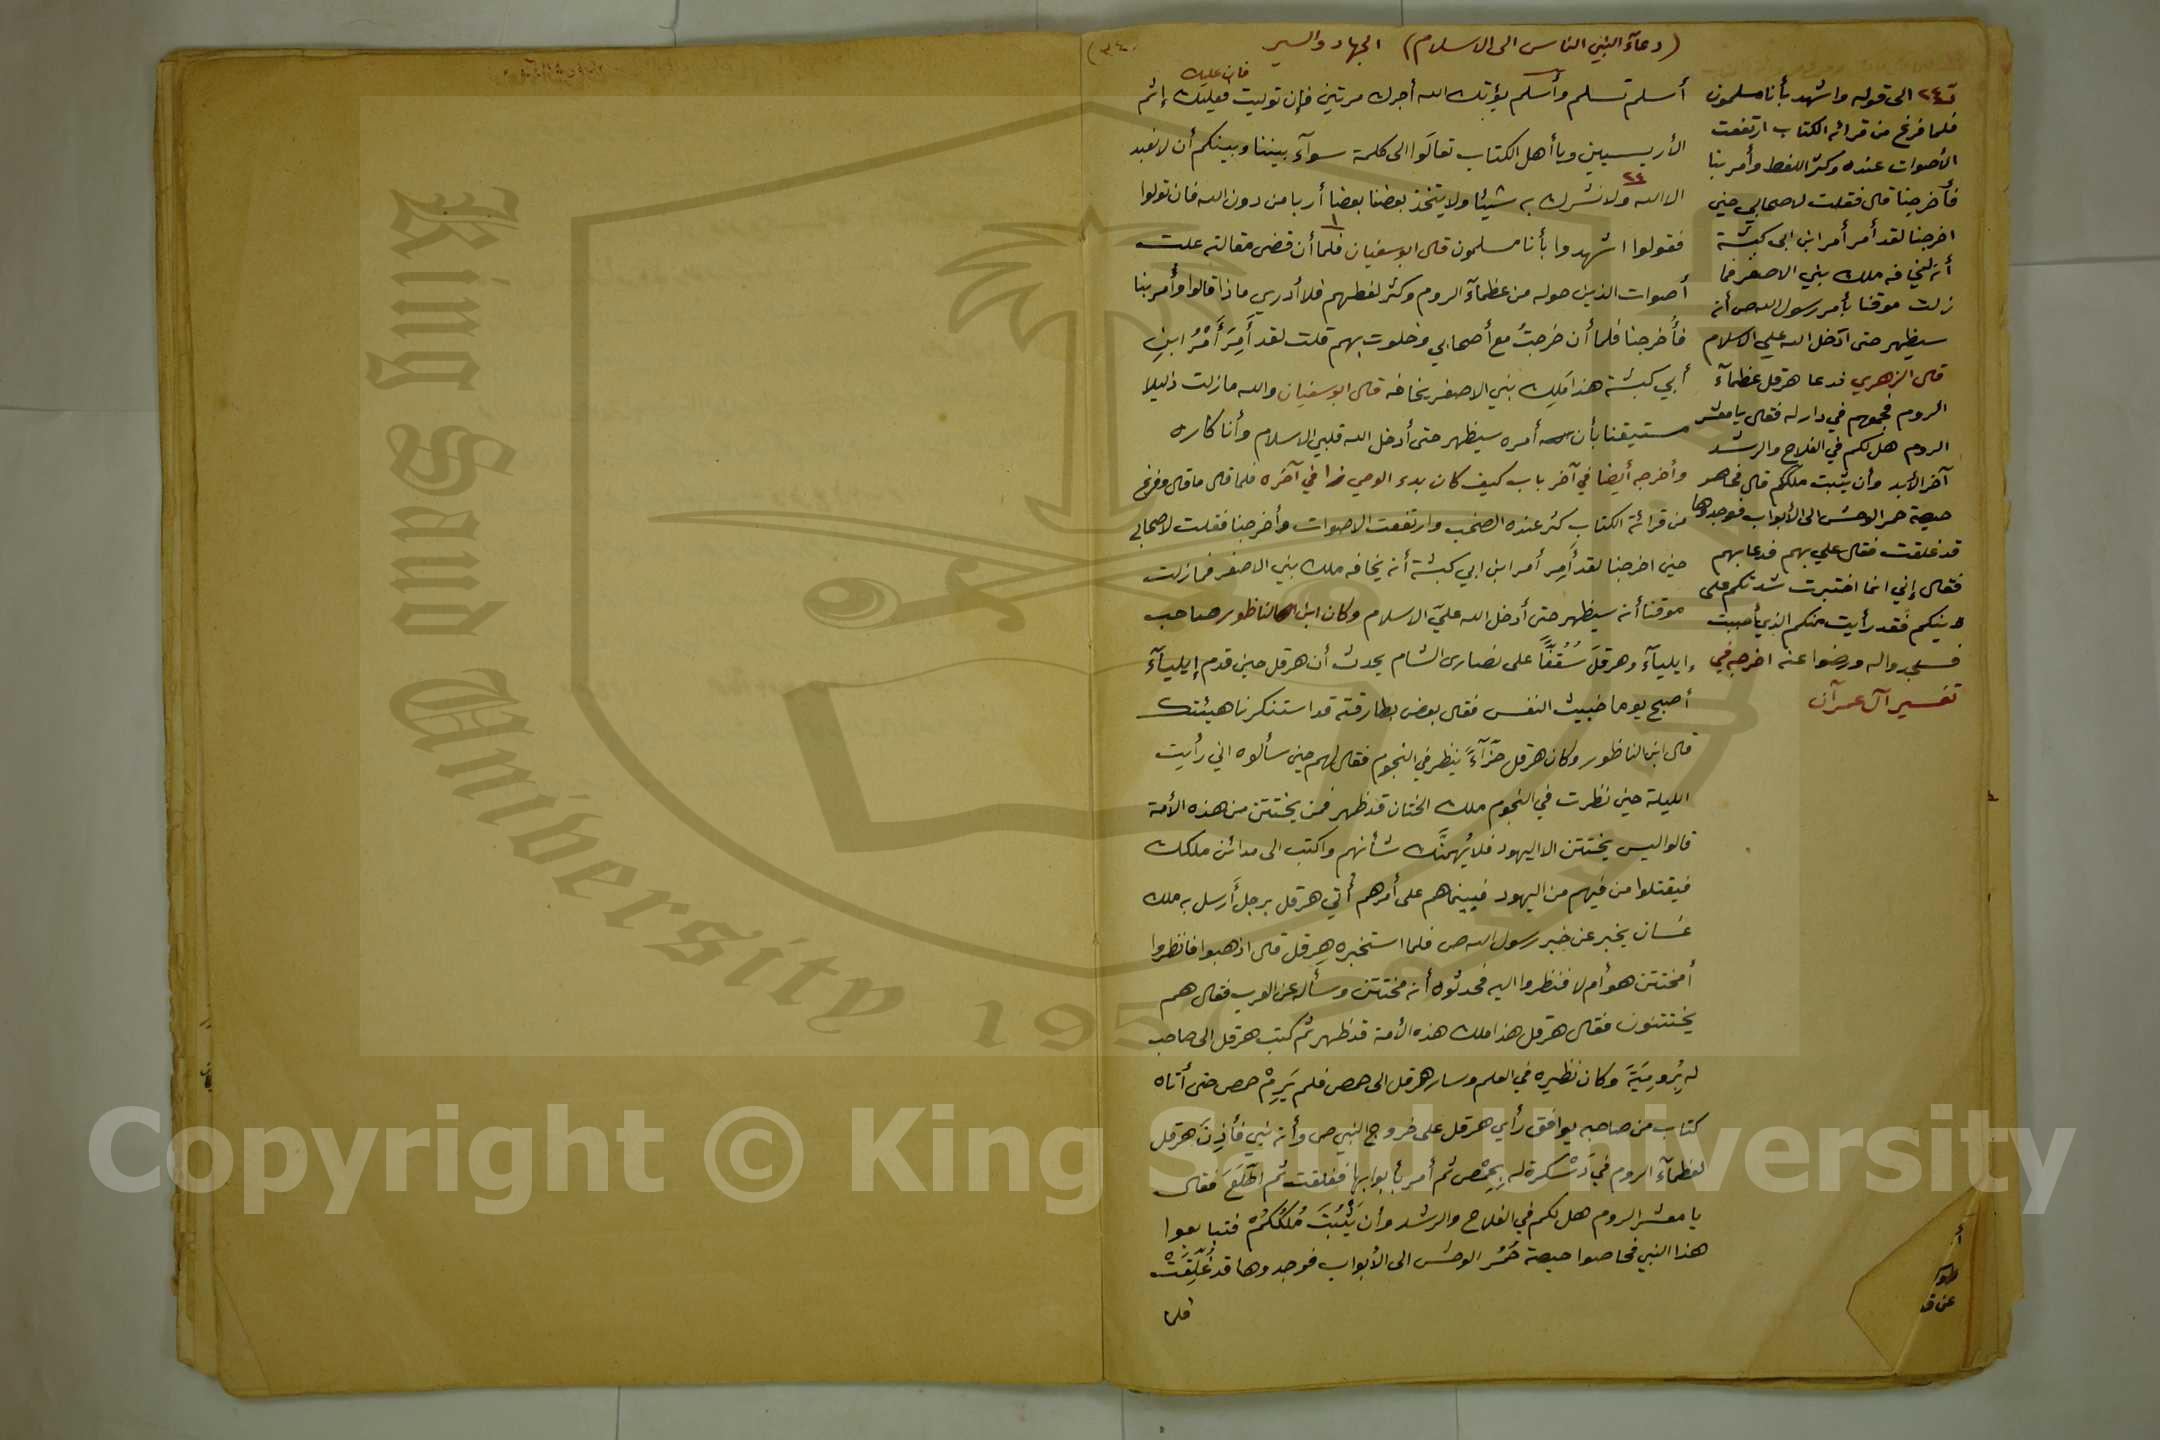 (دعآء النبي الناس الى الاسلام) الجهاد والسير
(٣٤٠
فان عليك
أسلم تسلم وأسلم يؤتك الله أجرك مرتين فإن توليت فعليك إثم
الأريسيين ويا أهل الكتاب تعالَوا الى كلمة سوآء بيننا وبينكم أن لا نعبد
الا الله ولا نشرك به شيئا ولا يتخذ بعضنا بعضا أربابا من دون الله فان تولوا
فقولوا اشهدوا بأنا مسلمون قال ابو سفيان فلما أن قضى مقالته علت
أصوات الذين حوله من عظمآء الروم وكثر لغطهم فلا أدري ماذا قالوا وأُمر بنا
فأُخرجنا فلما أن خرجتُ مع أصحابي وخلوت بهم قلت لقد أَمِرَ أَمْرُ ابنِ
أبي كبشة هذا مَلِك بني الاصفر يخافه قال ابو سفيان والله مازلت ذليلا
مستيقنا بأن أمره سيظهر حتى أدخل الله قلبي الاسلام وأنا كاره
وأخرجه أيضا في آخر باب كيف كان بدء الوحي فلما قال ما قال وفرغ
من قرائة الكتاب كثر عنده الصخب وارتفعت الاصوات وأخرجنا فقلت لاصحابي
حين اخرجنا لقد أَمِر أمر ابن ابي كبشة أنه يخافه ملك بني الاصفر فمازلت
موقنا أنه سيظهر حتى أدخل الله عليّ الاسلام وكان ابن الناظور صاحب
ايليآء وهرقلَ سُقُفًّا على نصارى الشام يحدث أن هرقل حين قدم إيليآء
أصبح يوما خبيث النفس فقال بعض بطارقته قد استنكرنا هيئتك
قال ابن الناظور وكان هرقل حَزّآءً ينظر في النجوم فقال لهم حين سألوه اني رأيت
الليلة حين نظرت في النجوم ملك الختان قد ظهر فمن يختتن من هذه الأمة
قالوا ليس يختتن الا اليهود فلا يُهمنَّك شأنهم واكتب الى مدائن ملكك
فيقتلوا من فيهم من اليهود فبينما هم على أمرهم أُتي هرقل برجل أرسل به ملك
غسان يخبر عن خبر رسول الله ص فلما استخبره هِرقل قال اذهبوا فانظروا
أمختتن هو أم لا فنظروا اليه فحدثوه أنه مختتن وسأله عن العرب فقال هم
يختتنون فقال هرقل هذا ملك هذه الأمة قد ظهر ثم كتب هرقل الى صاحب
له بِرُومِيَةَ وكان نظيره في العلم وسار هرقل الى حمص فلم يَرِمْ حمص حتى أتاه
كتاب من صاحبه يوافق رأي هرقل على خروج النبي ص وأنه نبي فأذِنَ هرقل
لعظمآء الروم في دَسْكرة له بحِمْص ثم أمر بأبوابها فغلقت ثم اطّلَعَ فقال
يا معشر الروم هل لكم في الفلاح والرشد وأن يَثْبُتَ مُلككُمْ فتبايعوا
هذا النبي فحاصوا حيصة حُمُرِ الوحش الى الأبواب فوجدوها قد غُلِّقَتْ
فلما
٢٤ الى قوله واشهد بأنا مسلمون
فلما فرغ من قرائه الكتاب ارتفعت
الأصوات عنده وكثر اللغط وأمر بنا
فأخرجنا قال فقلت لاصحابي حين
اخرجنا لقد أمر أمر ابن ابي كبشة
أنه ليخافه ملك بني الاصفر فما
زلت موقنا بأمر رسول الله ص أنه
سيظهر حتى ادخل الله علي الاسلام
قال الزهري فدعا هرقل عظمآء
الروم فجمعهم في دار له فقال يا معشر
الروم هل لكم في الفلاح والرشد
آخر الأبد وأن يثبت ملككم قال فحاصو
حيصة حمر الوحش الى الأبواب فوجدوها
قد غلقت فقال علي بهم فدعا بهم
فقال إني انما اختبرت شدتكم على
دينكم فقد رأيت منكم الذي أحببت
فسجدوا له ورضوا عنه اخرجه في
تفسير آل عمرآن
عن قد
King Saud University
1957
Copyright © King Saud University